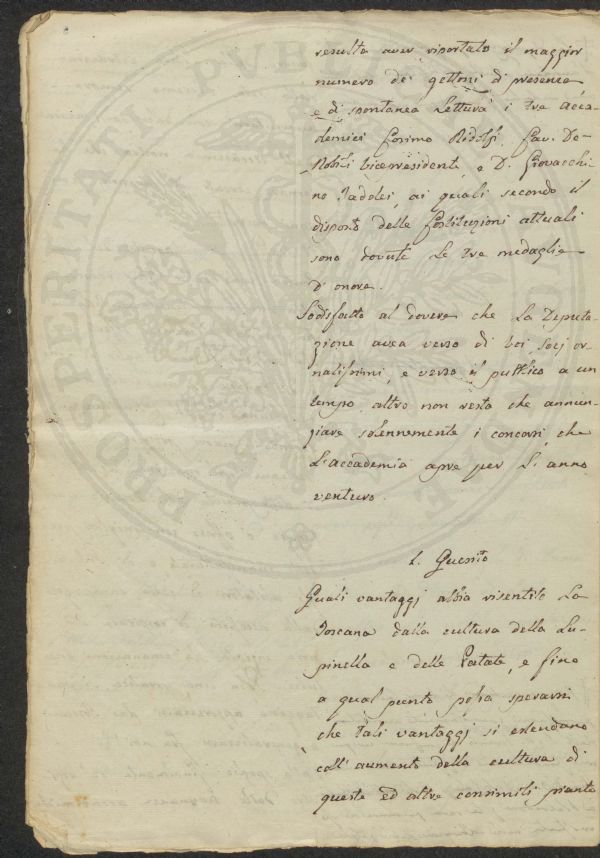 resulta aver riportato il maggior
numero dei gettoni di presenza
e di spontanea Lettura i tre Acca-
demici Cosimo Ridolfi, Cav. De-
Nobili Vicepresidente, e D. Giovacchi-
no Taddei, ai quali secondo il
disposto delle Costituzioni attuali
sono dovute le tre medaglie
d'onore.
Sodisfatto al dovere che La Deputa-
zione avea verso di Voi, Socj or-
natissimi, e verso il pubblico a un
tempo, altro non resta che annun-
ziare solennemente i concorsi, che
L'accademia apre per L'anno
venturo.
1. Quesito
Quali vantaggj abbia risentito La
Toscana dalla cultura della Lu-
pinella e delle Patate, e fino
a qual punto possa sperarsi
che tali vantaggj si estendano
coll'aumento della cultura di
queste ed altre consimili piante
PROSPERITATI PUBLICAE